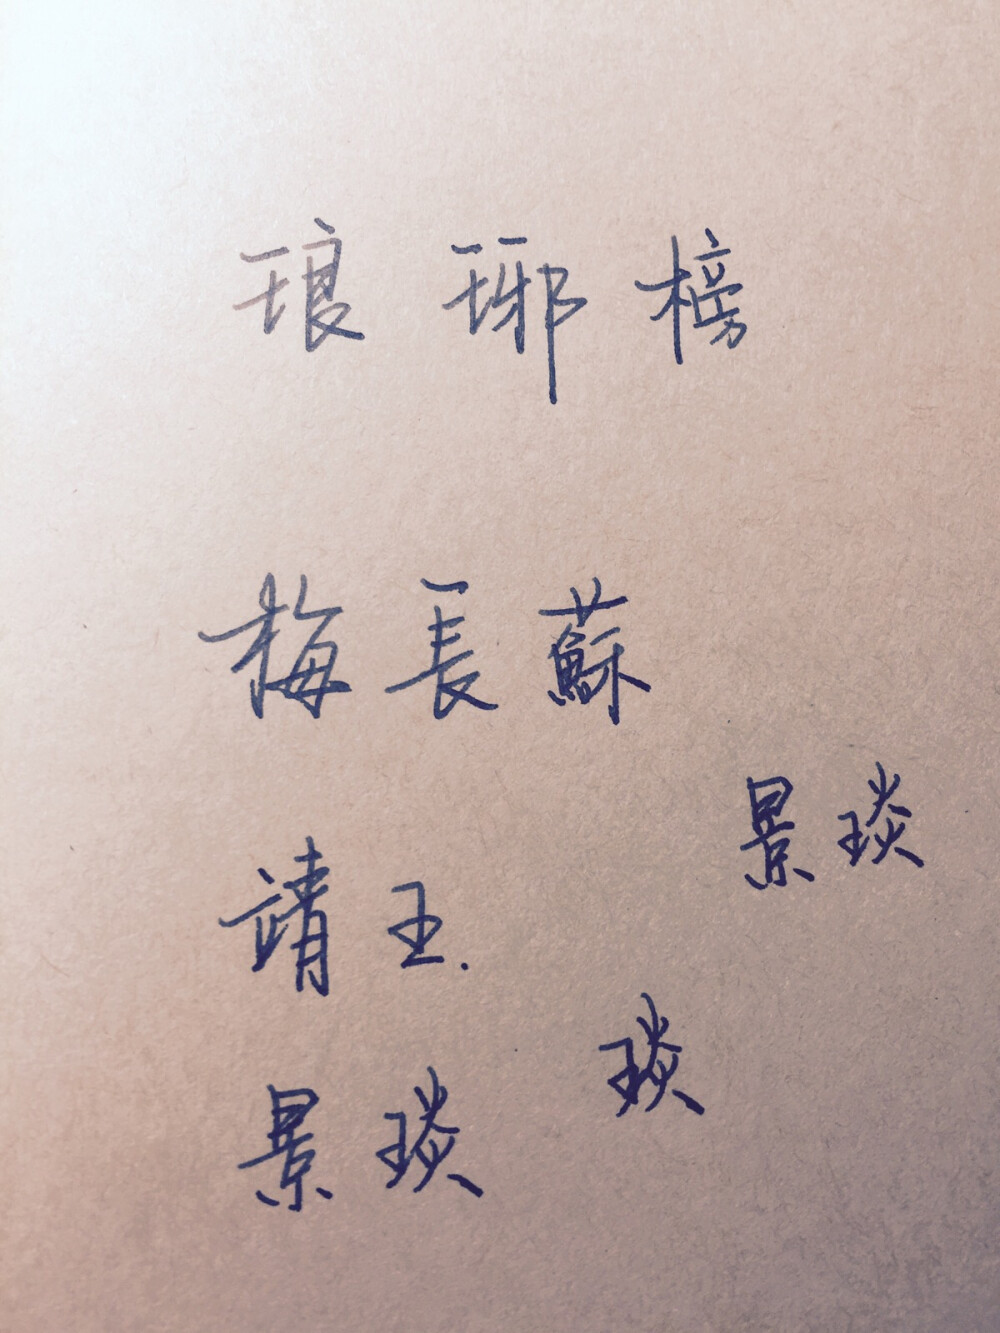 琅琊榜
梅長蘇
景琰
靖王.
琰
景琰